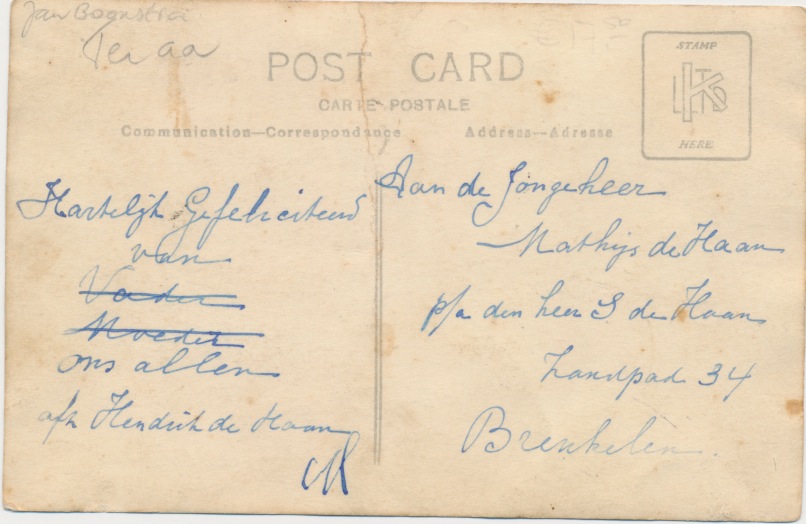 Jan Boonstra
Ter aa
POST CARD
CARTE POSTALE
Communication—Correspondance
Address--Adresse
STAMP
KLTD
HERE
Hartelijk Gefeliciteerd
van
Vader
Moeder
ons allen
afz Hendrik de Haan
Aan de Jongeheer
Mathijs de Haan
p/a den heer S de Haan
Zandpad 34
Breukelen